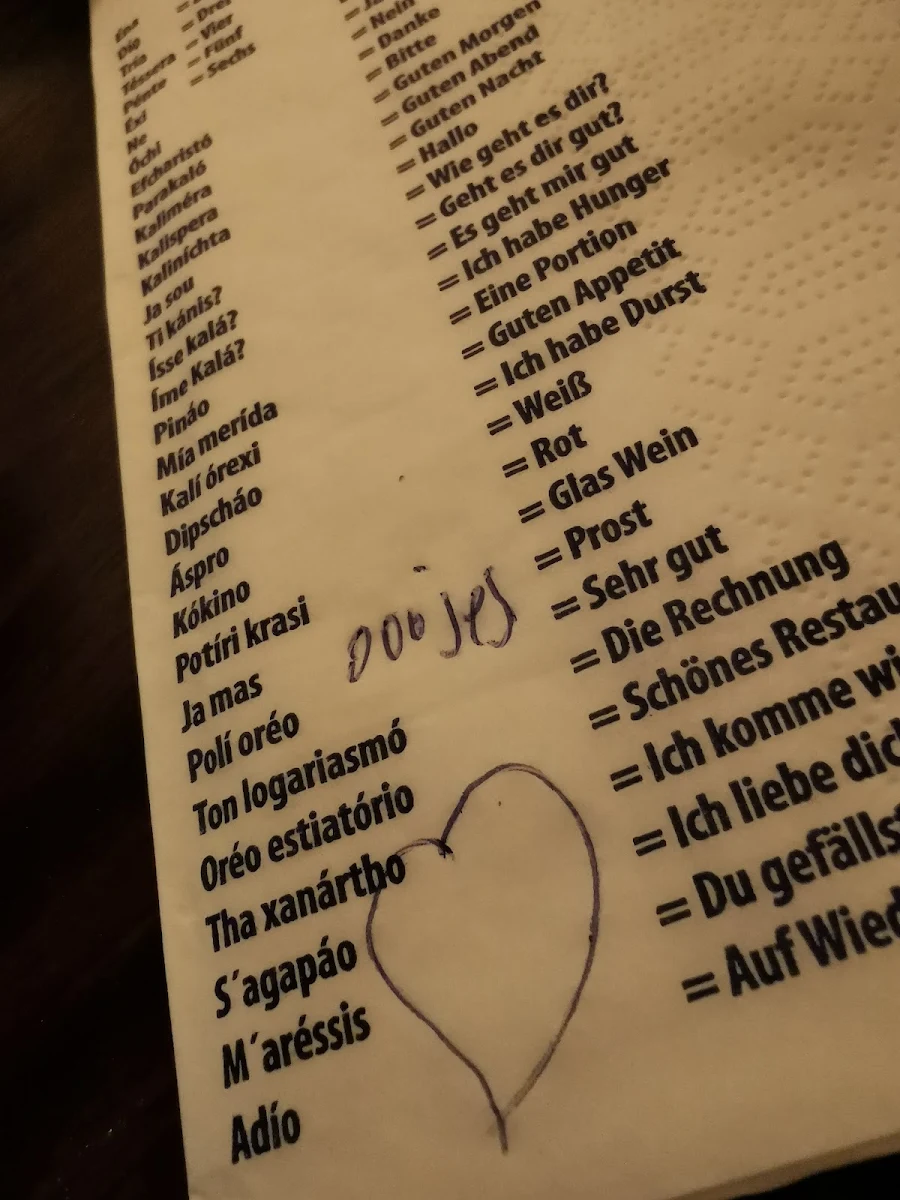 Dío
Tría = Drei
Téssera = Vier
Pénte = Fünf
Éxi = Sechs
Ne = Ja
Óchi = Nein
Efcharistó = Danke
Parakaló = Bitte
Kaliméra = Guten Morgen
Kalispera = Guten Abend
Kaliníchta = Guten Nacht
Ja sou = Hallo
Ti kánis? = Wie geht es dir?
Ísse kalá? = Geht es dir gut?
Íme Kalá? = Es geht mir gut
Pináo = Ich habe Hunger
Mía merída = Eine Portion
Kalí órexi = Guten Appetit
Dipscháo = Ich habe Durst
Áspro = Weiß
Kókino = Rot
Potíri krasi = Glas Wein
Ja mas = Prost
Polí oréo = Sehr gut
Ton logariasmó = Die Rechnung
Oréo estiatório = Schönes Restau
Tha xanártho = Ich komme wi
S´agapáo = Ich liebe dic
M´aréssis = Du gefälls
Adío = Auf Wied